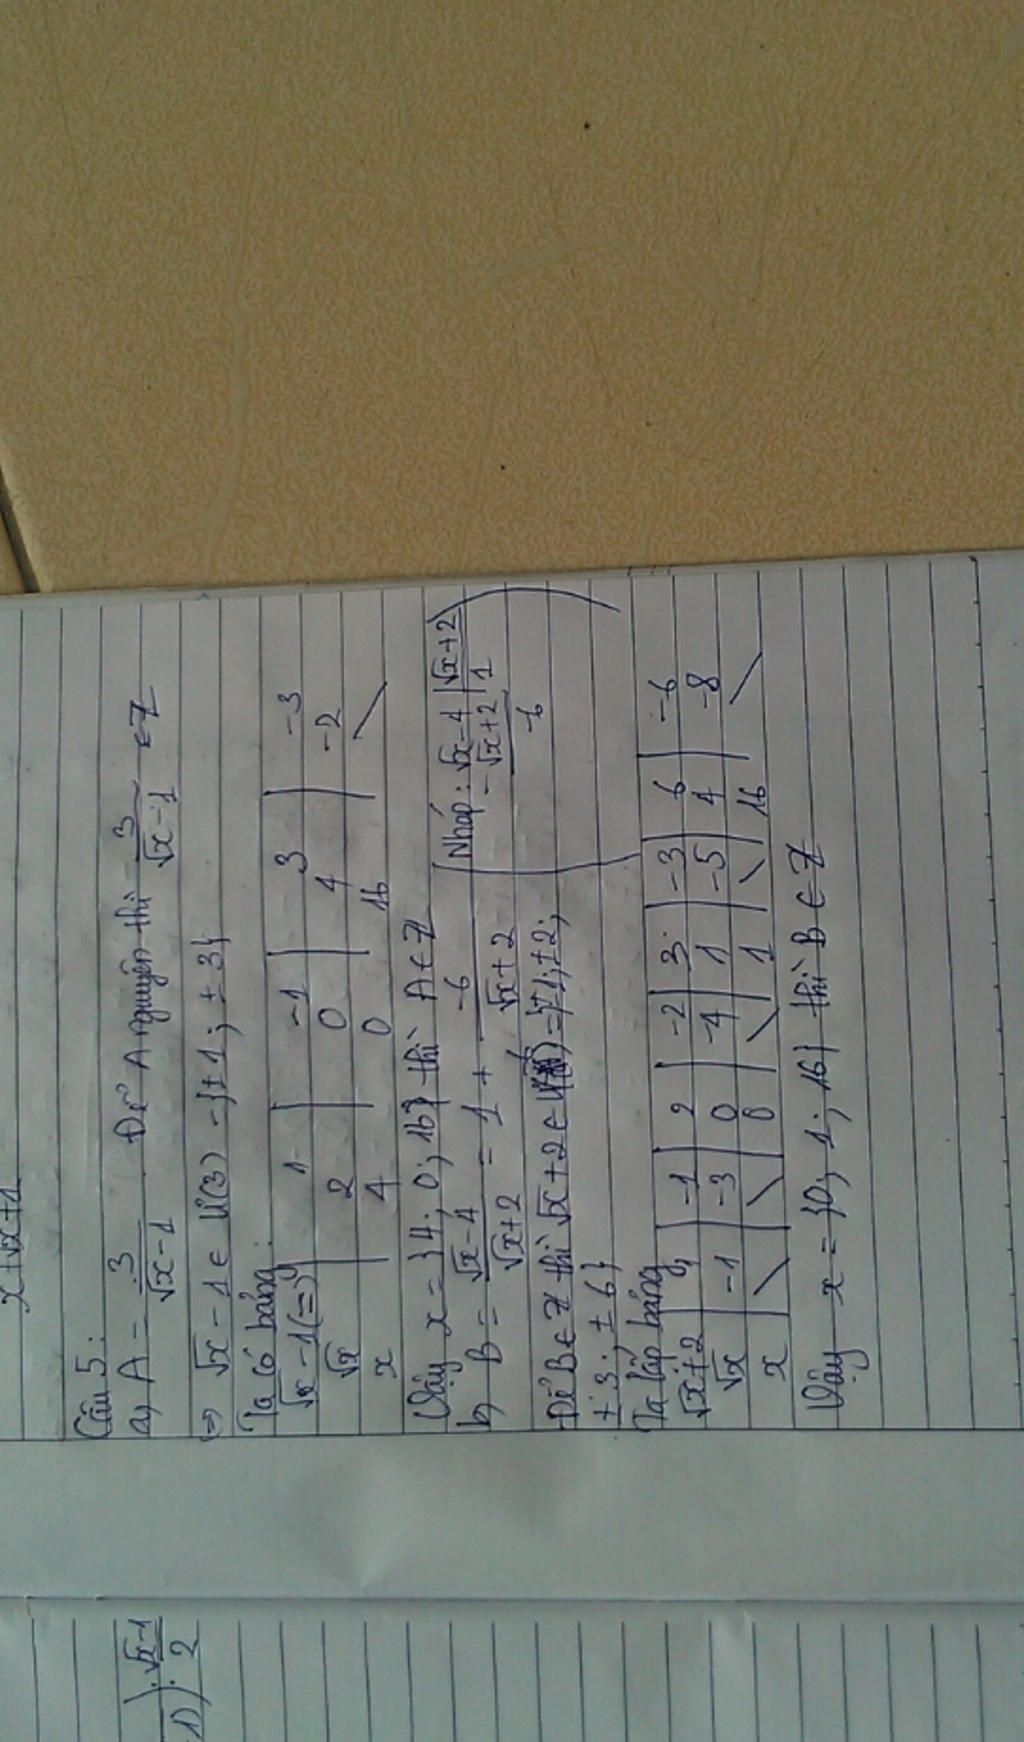 x+√x+1
Câu 5:
a, A = 3/(√x-1). Để A nguyên thì 3/(√x-1) ∈ Z
(=) √x - 1 ∈ Ư(3) = {±1; ±3}
Ta có bảng:
√x - 1 (=) | 1 | -1 | 3 | -3
√x | 2 | 0 | 4 | -2
x | 4 | 0 | 16 | \
Vậy x = {4; 0; 16} thì A ∈ Z
b, B = (√x-4)/(√x+2) = 1 + (-6)/(√x+2)
(Nháp: √x-4 | √x+2
- √x+2 | 1
-6 )
Để B ∈ Z thì √x+2 ∈ Ư(6) = {±1; ±2;
±3; ±6}
Ta lập bảng
√x+2 | 1 | -1 | 2 | -2 | 3 | -3 | 6 | -6
√x | -1 | -3 | 0 | -4 | 1 | -5 | 4 | -8
x | \ | \ | 0 | \ | 1 | \ | 16 | \
Vậy x = {0; 1; 16} thì B ∈ Z
-1) ) : (√x-1)/2